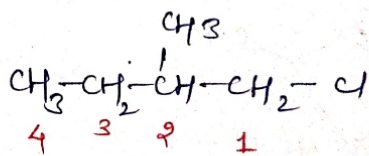 CH3
CH3-CH2-CH-CH2-Cl
4 3 2 1